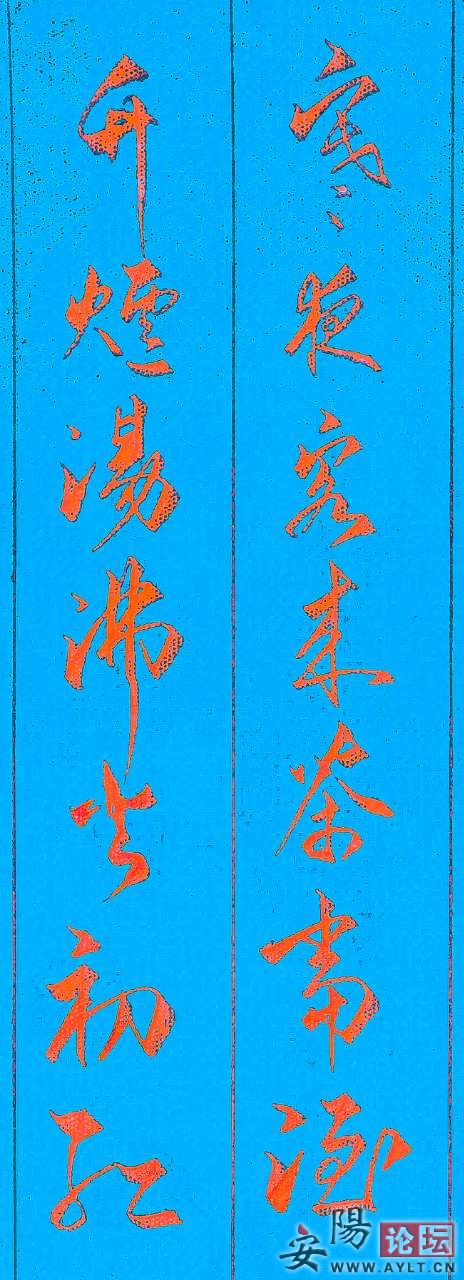 寒夜客来茶當酒
竹爐湯沸火初紅
安陽论坛
WWW.AYLT.CN